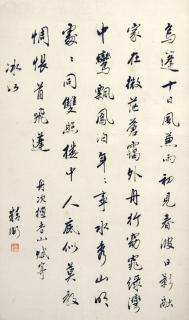 烏篷十日風兼雨初見春波日影融
家在微茫蒼靄外舟行窈窕綠灣
中鸞飄鳳泊年々事水秀山明
處々同雙照樓中人底似莫教
惆悵首飛蓬
冰如
舟次檀香山賦寄
精衛